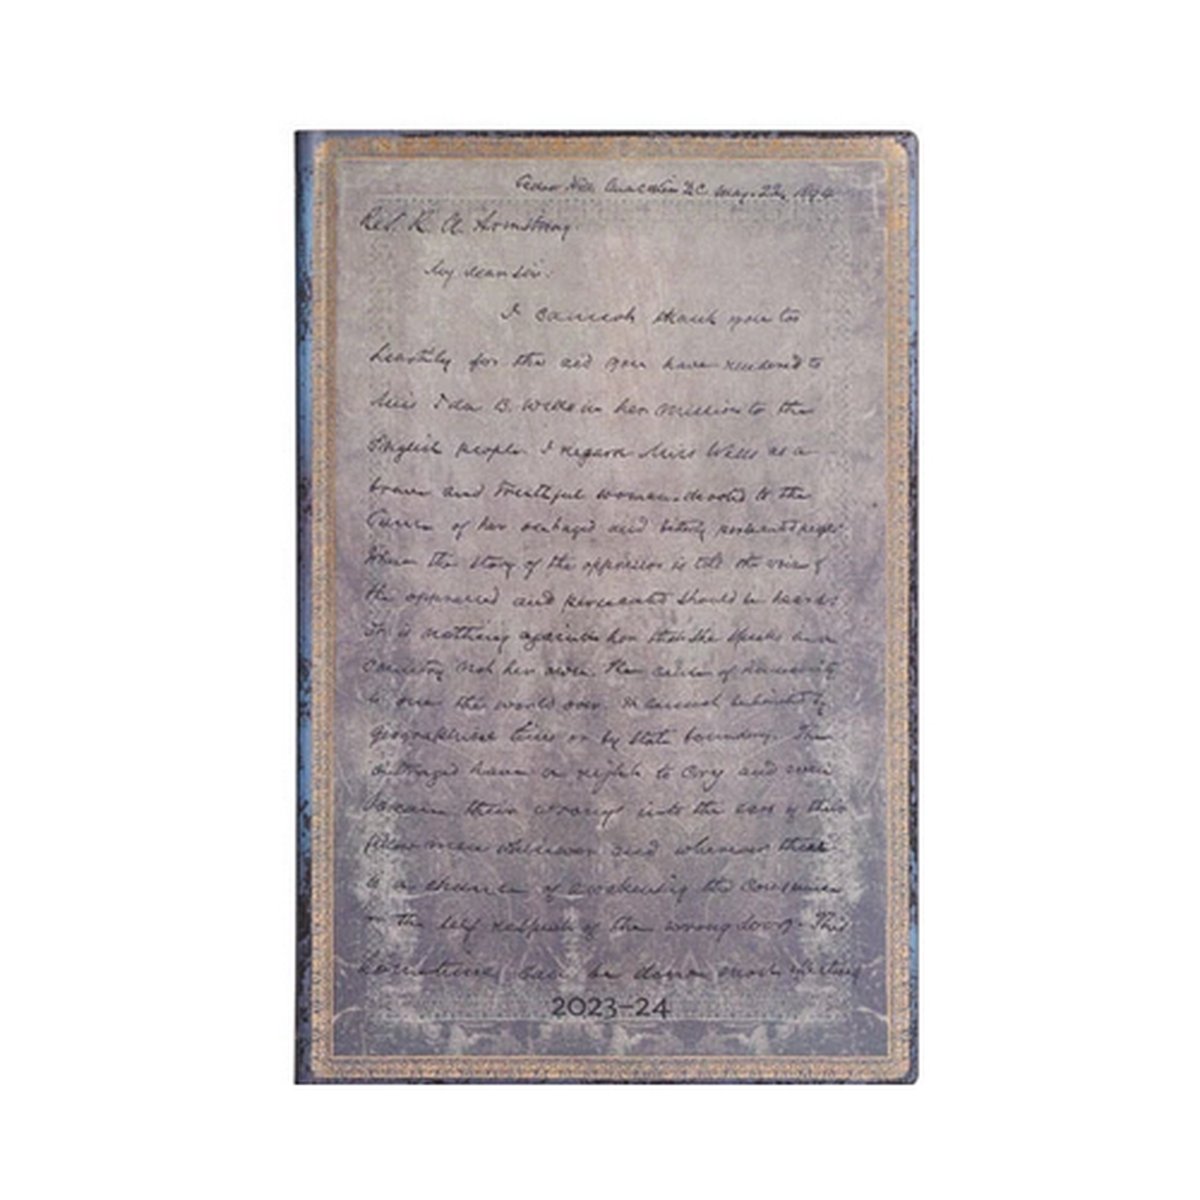 Cedar Hill Anacostia D.C. May. 22, 1894
Rev. R. A. Armstrong.
My dear sir:
I cannot thank you too
heartily for the aid you have rendered to
Miss Ida B. Wells in her mission to the
English people. I regard Miss Wells as a
brave and truthful woman devoted to the
Cause of her outraged and bitterly persecuted people
When the story of the oppressor is told the voice of
the oppressed and persecuted should be heard:
It is nothing against her that she speaks in a
country not her own. The cause of humanity
is one the world over. It cannot be limited by
geographical lines or by state boundary. The
outraged have a right to cry and
their wrongs into the ears of their
fellow men whenever and wherever there
is a chance of awakening the
or the self respect of the wrong doer. This
sometime can be done most
2023–24